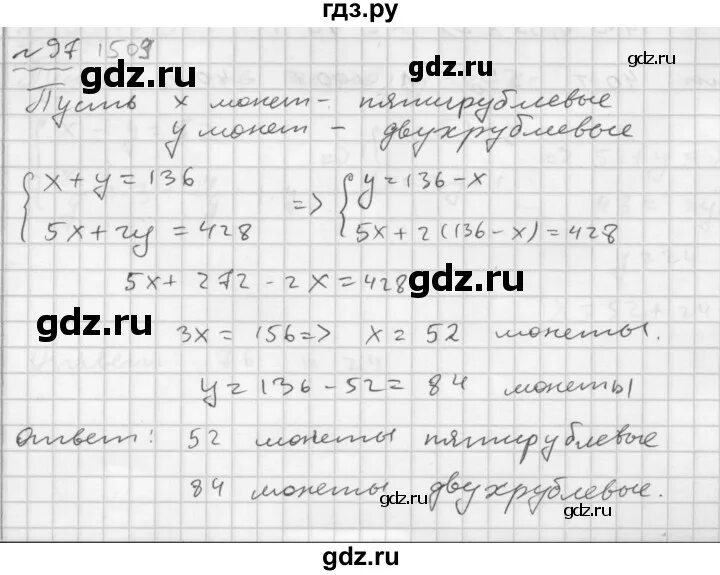 гдз.ру
№97 1509
gdz.ru
Пусть x монет - пятирублевые
y монет - двухрублевые
{x+y=136 => {y=136-x
{5x+2y=428 {5x+2(136-x)=428
5x+272-2x=428
gdz.ru
gdz.ru
3x=156=> x=52 монеты.
y=136-52=84 монеты
Ответ: 52 монеты пятирублевые
gdz.ru
84 монеты двухрублевые.
gdz.ru
gdz.ru